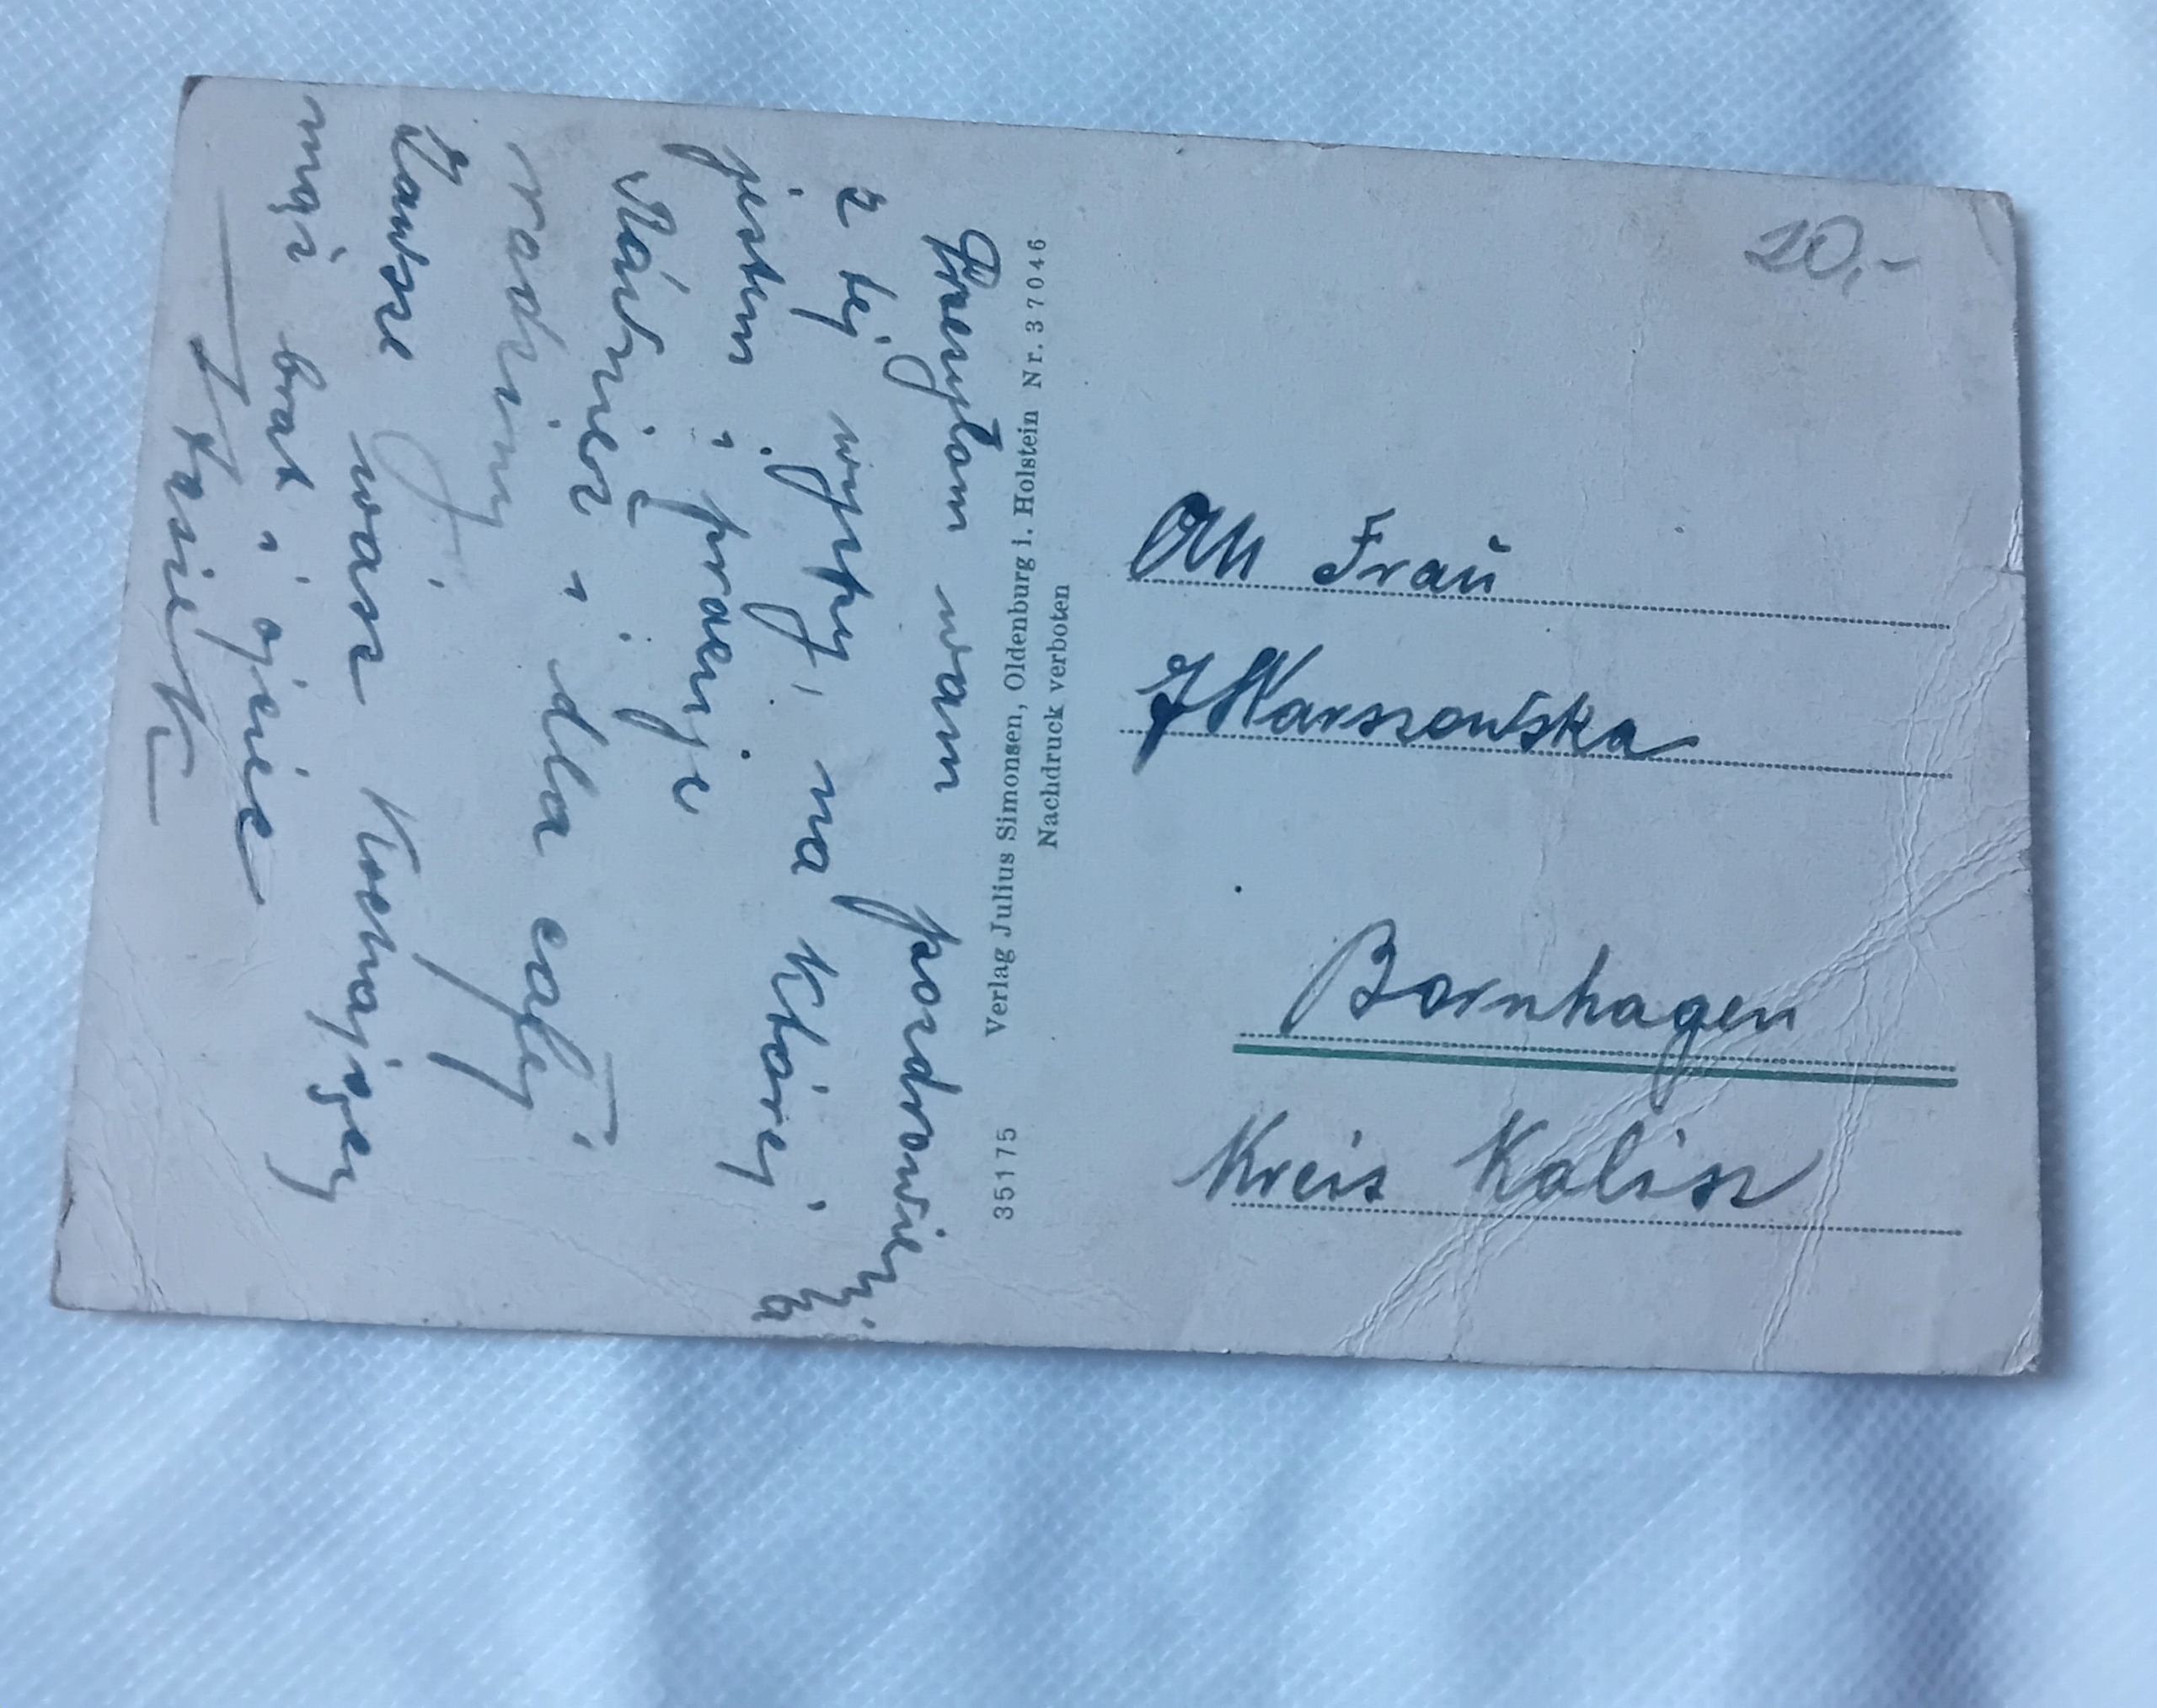 Przesyłam wam pozdrowienia
z tej wyspy, na której
jestem i pracuje
Również i dla całej
rodziny
Zawsze was kochający
mąż brat i ojciec
Stasiek
35175 Verlag Julius Simonsen, Oldenburg i. Holstein Nr. 37046
Nachdruck verboten
20,-
An Fraŭ
J Warszowska
Bornhagen
Kreis Kalisz